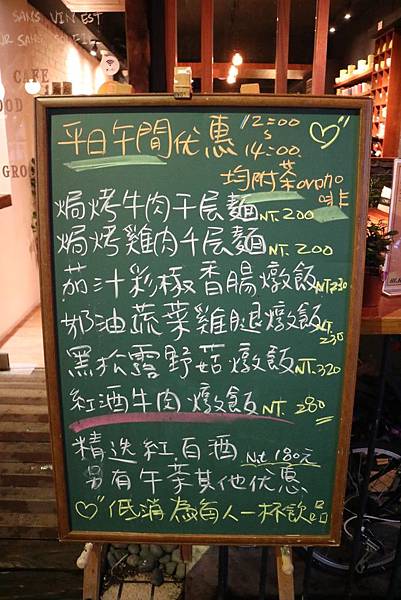 SANS VIN EST
CAFE
GRO
平日午間优惠 12:00
S
14:00
均附茶or咖
啡
焗烤牛肉千层麵 NT.200
焗烤雞肉千层麵 NT.200
茄汁彩椒香腸燉飯 NT.230
奶油蔬菜雞腿燉飯 NT.230
黑松露野菇燉飯 NT.320
紅酒牛肉燉飯 NT.280
精选紅.白酒 Nt 180元
另有午茶其他优惠
低消為每人一杯飲品